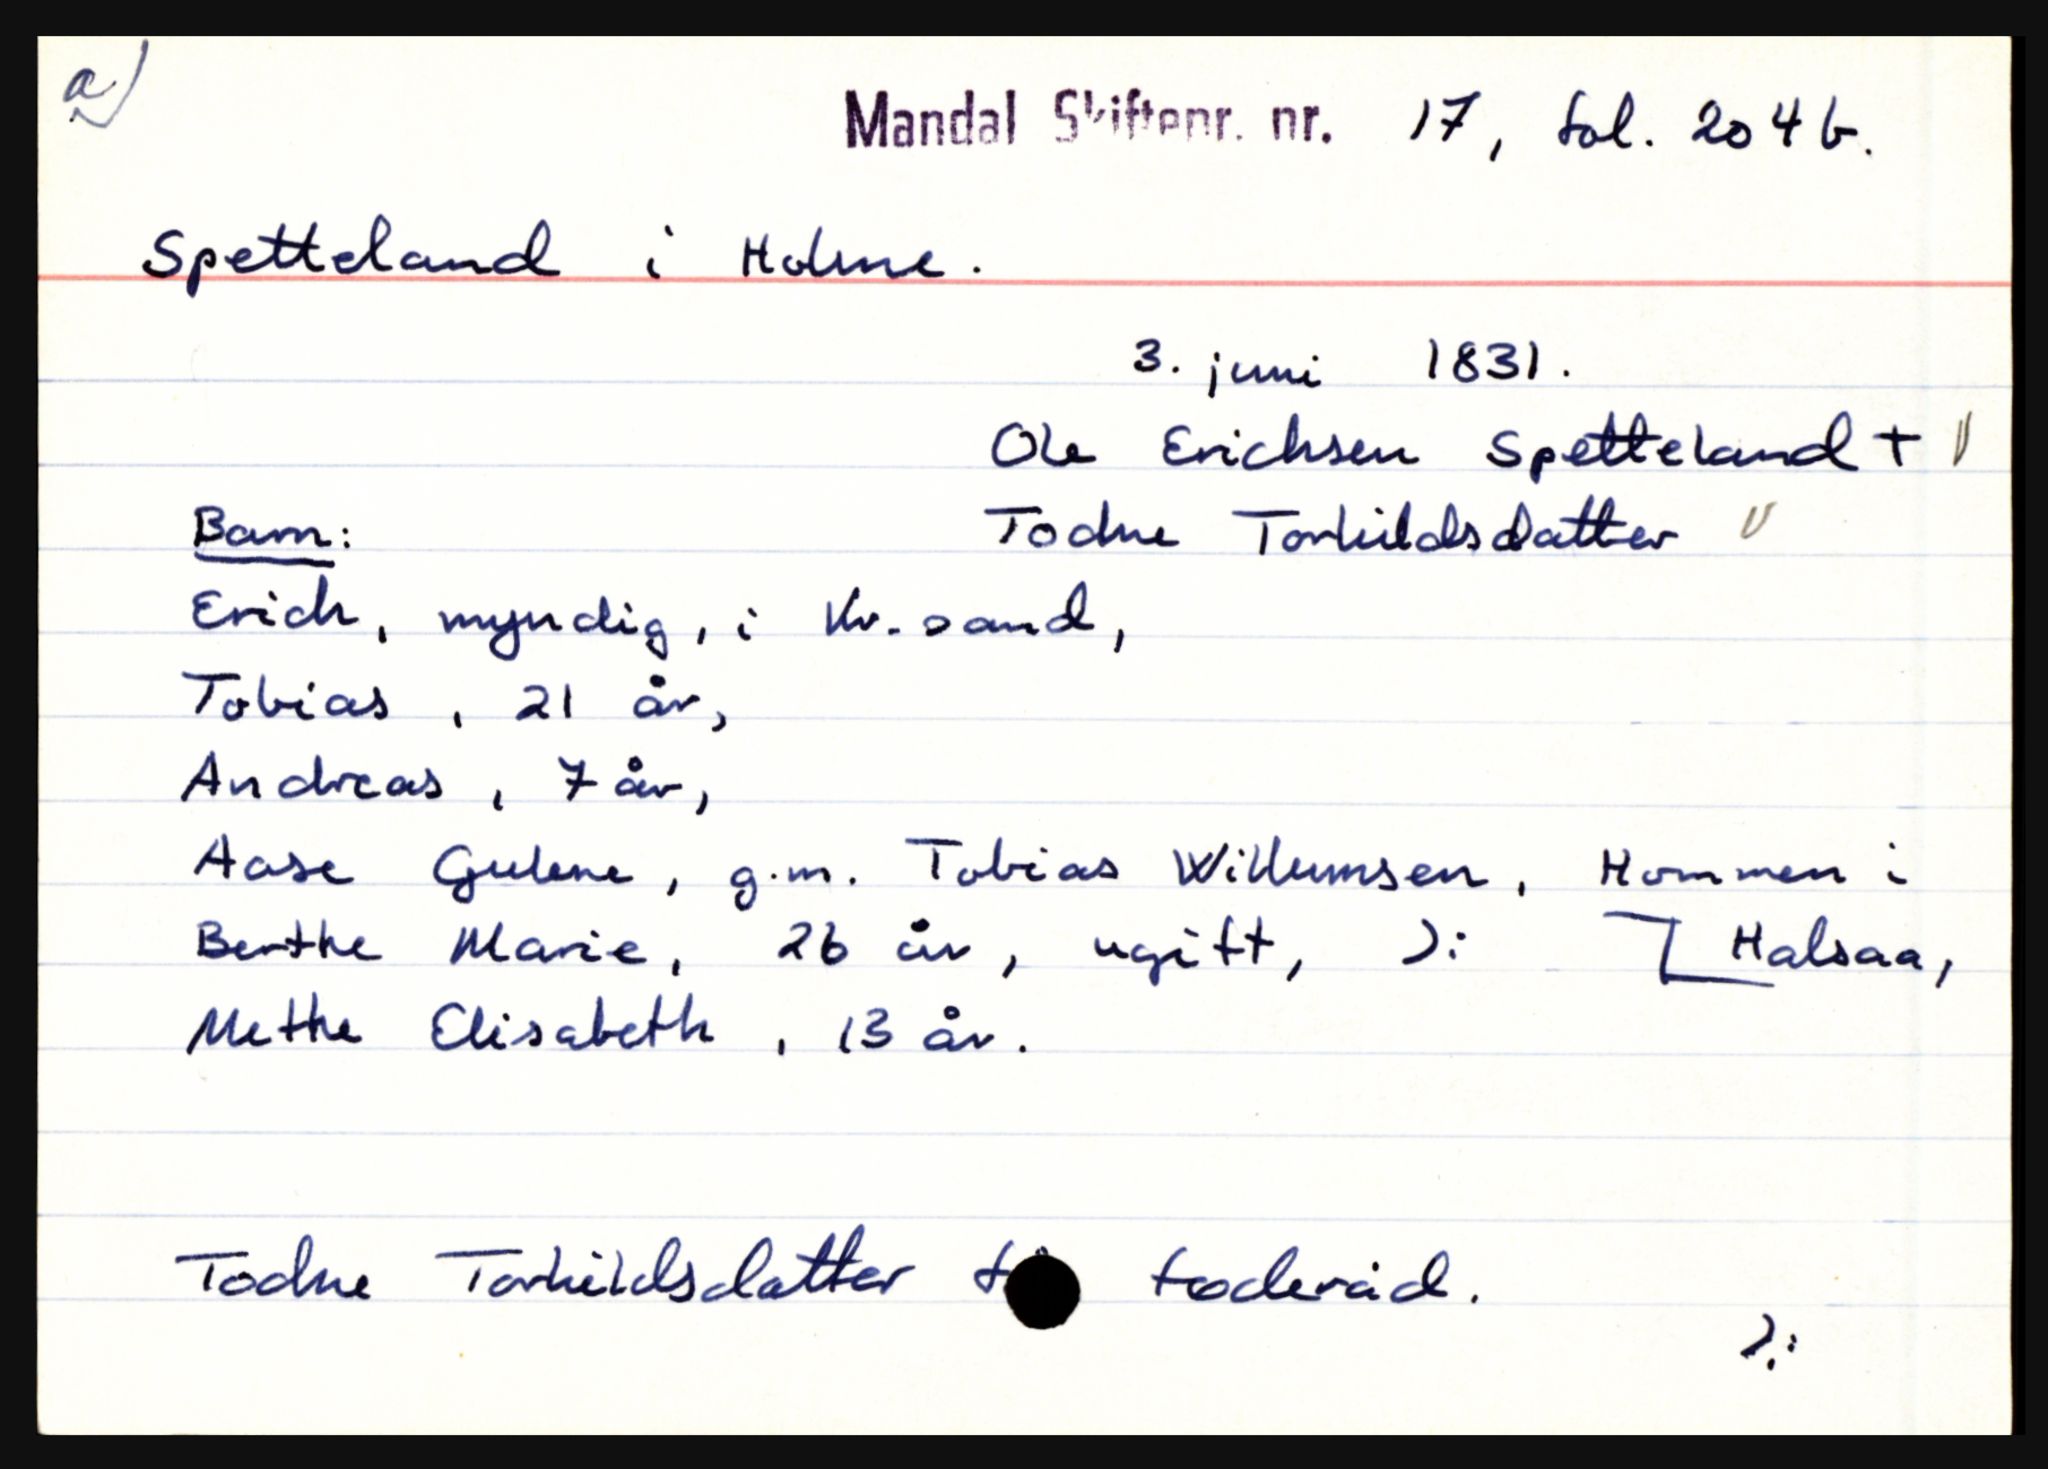 a)
Mandal Skiftepr. nr. 17, fol. 204 b.
Spetteland i Holme.
3. juni 1831.
Ole Erichsen Spetteland +
Todne Torkildsdatter
Barn:
Erich, myndig, i Kr.sand,
Tobias, 21 år,
Andreas, 7 år,
Aase Gulene, g.m. Tobias Willumsen, Hommen i
Halsaa,
Berthe Marie, 26 år, ugift, ):
Methe Elisabeth, 13 år.
Todne Torkildsdatter føderåd.
):